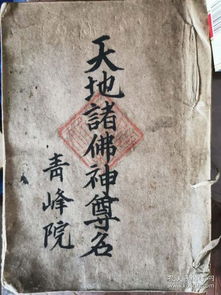 天地諸佛神尊名
青峰院